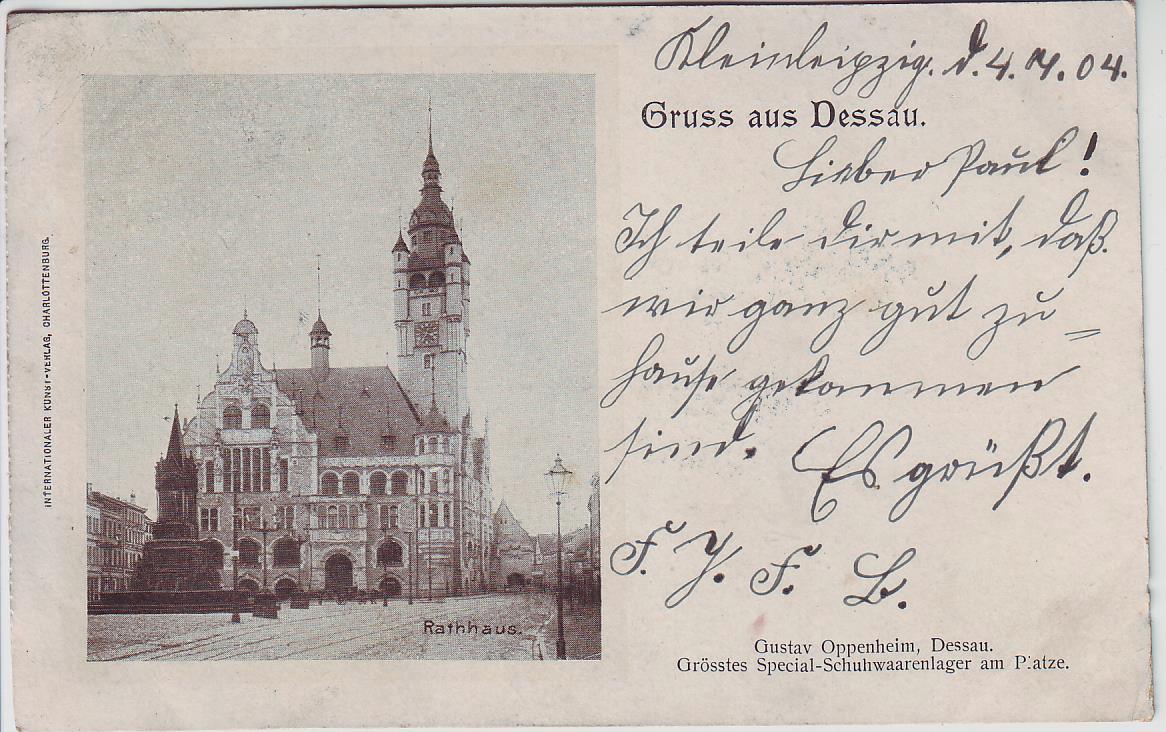 Kleinleipzig. d. 4. 7. 04.
Gruss aus Dessau.
Lieber Paul!
Ich teile dir mit, daß
wir ganz gut zu=
hause gekommen
sind. Es grüßt.
F. J. F. L.
Rathhaus.
INTERNATIONALER KUNST-VERLAG, CHARLOTTENBURG.
Gustav Oppenheim, Dessau.
Grösstes Special-Schuhwaarenlager am Platze.